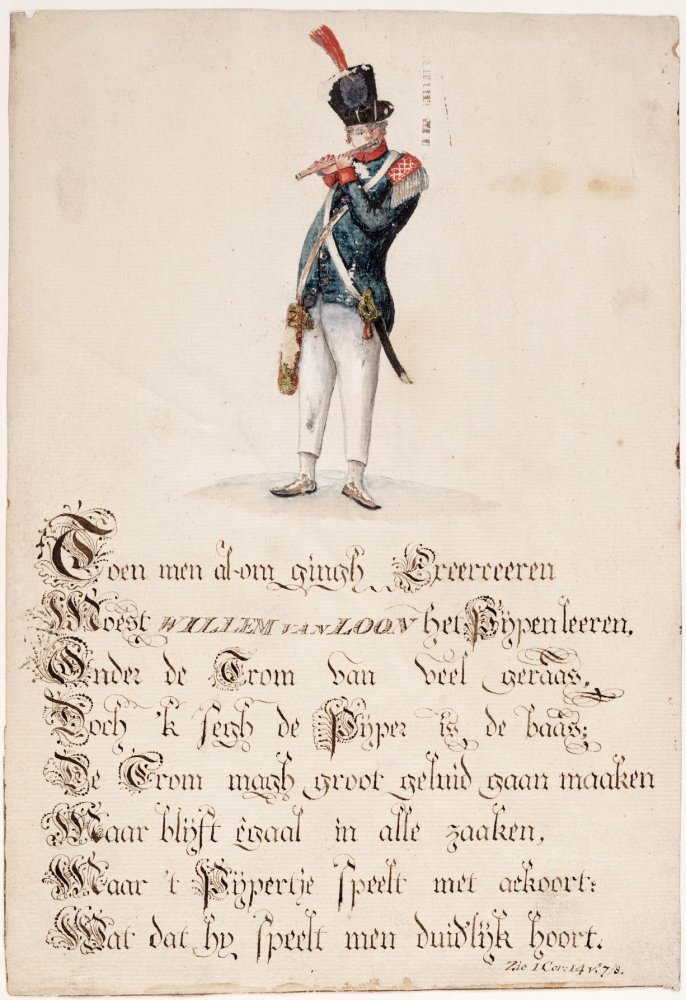 Toen men al-om gingh Exerceeren
Moest WILLEM VAN LOON het Pÿpen leeren,
Onder de Trom van veel geraas,
Doch 'k segh de Pÿper is de baas;
De Trom magh groot geluid gaan maaken
Maar blÿft égaal in alle zaaken,
Maar 't Pÿpertje speelt met ackoort:
Wat dat hÿ speelt men duid'lÿk hoort.
Zie I Cor: 14 vs. 7/8.